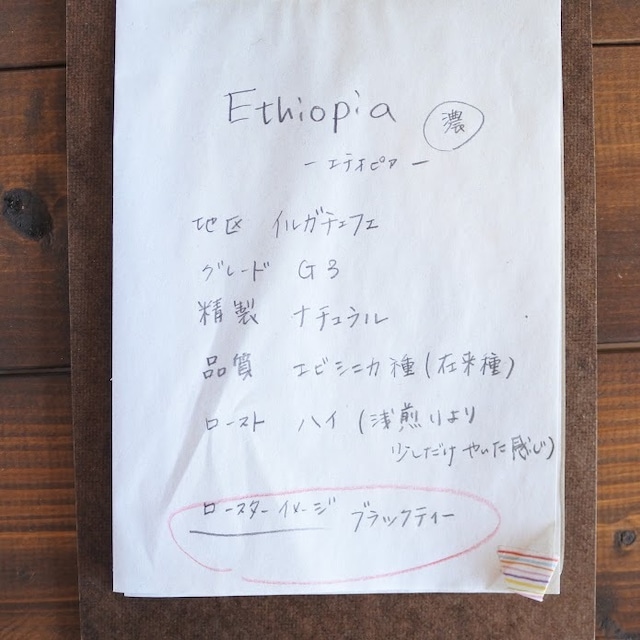 Ethiopia 濃
ー エティピア ー
地区 イルガチェフェ
グレード G3
精製 ナチュラル
品質 エビシニカ種(在来種)
ロースト ハイ(浅煎りより
少しだけやいた感じ)
ロースターイメージ ブラックティー